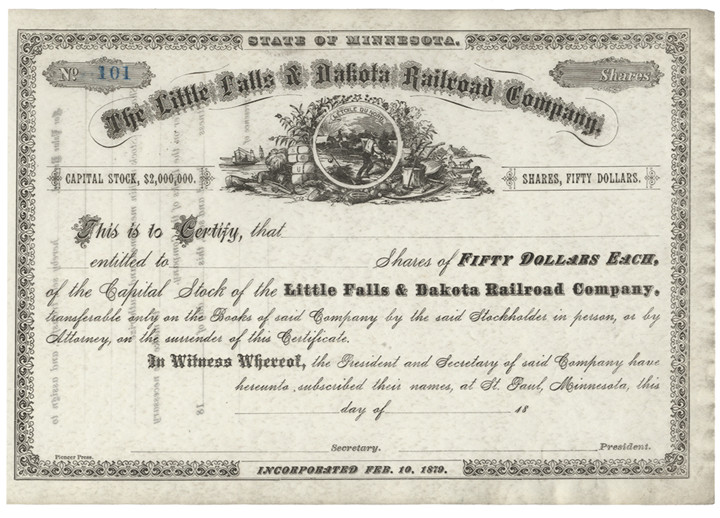 STATE OF MINNESOTA.
No. 101
Shares
The Little Falls & Dakota Railroad Company.
L'ETOILE DU NORD
CAPITAL STOCK, $2,000,000.
SHARES, FIFTY DOLLARS.
This is to Certify, that
entitled to Shares of FIFTY DOLLARS EACH,
of the Capital Stock of the Little Falls & Dakota Railroad Company,
transferable only on the Books of said Company by the said Stockholder in person, or by
Attorney, on the surrender of this Certificate.
In Witness Whereof, the President and Secretary of said Company have
hereunto subscribed their names, at St. Paul, Minnesota, this
day of 18
Secretary. President.
Pioneer Press.
INCORPORATED FEB. 10, 1879.